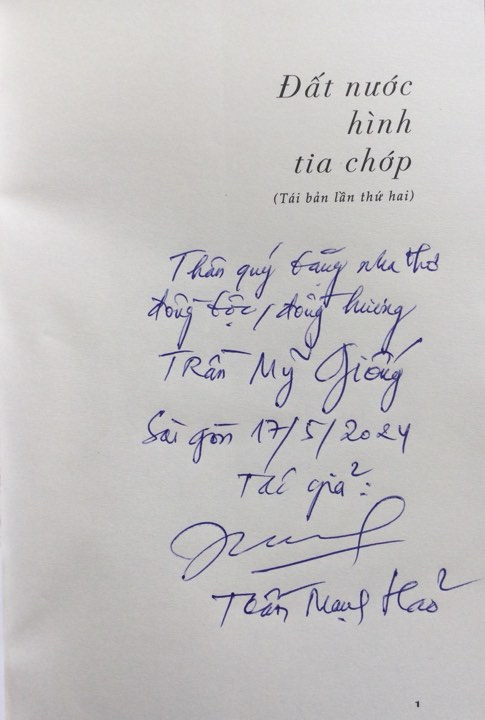 Đất nước
hình
tia chớp
(Tái bản lần thứ hai)
Thân quý tặng nhà thơ
đồng tộc, đồng hương
Trần Mỹ Giống
Sài gòn 17/5/2024
Tác giả:
Trần Mạnh Hảo
1